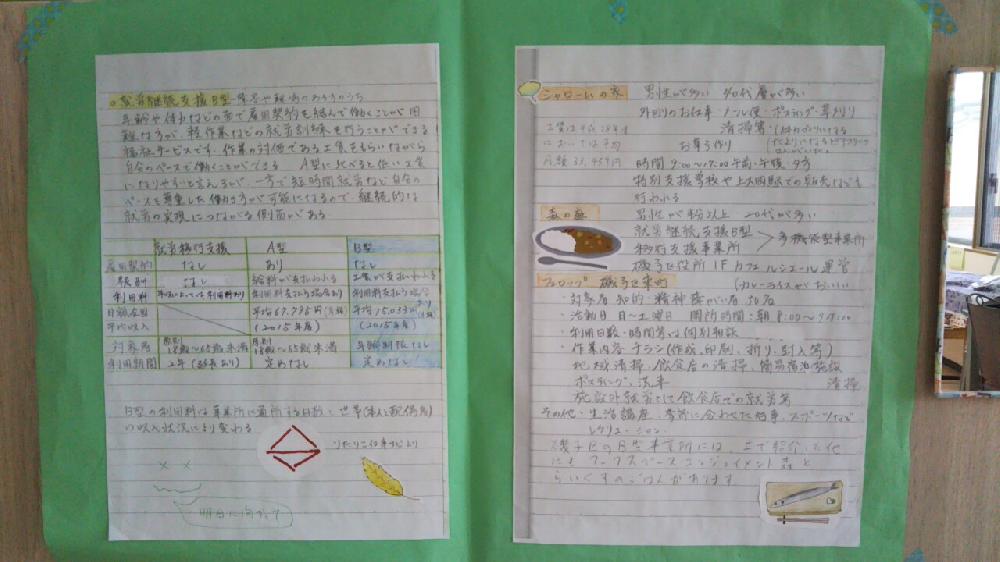 ○ 就労継続支援B型-障害や難病のある方のうち
年齢や体力などの面で雇用契約を結んで働くことが困
難な方が 軽作業などの就労訓練を行うことができる
福祉サービスです。作業の対価である工賃をもらいながら
自分のペースで働くことができる A型に比べると低い工賃
になりやすいと言えるが、一方で短時間就労など自分の
ペースを尊重した働き方が可能になるので継続的な
就労の実現につながる側面がある。
就労移行支援 A型 B型
雇用契約 なし あり なし
なし 給料が支払われる 工賃が支払われる
利用料 利用料支払う場合あり 利用料支払う場合あり
平均67,795円(月額) 平均15,033円(月額)
平均収入 (2015年度) (2015年度)
対象者 原則18歳~65歳未満 原則18歳~65歳未満 年齢制限なし
利用期間 2年(延長あり) 定めなし 定めなし
B型の利用料は事業所に通所する日数と世帯(本人と配偶者)
の収入状況により変わる
りたりこ仕事ナビより
シャロームの家 男性が多い 40代層が多い
外回りのお仕事 メール便・ポスティング・草刈り
清掃等
お弁当作り
月額 33,459円 時間 9:00~17:00 午前・午後・夕方
特別支援学校や上大岡駅での販売なども
行われる
森の庭 男性が半分以上 20代が多い
就労継続支援B型
移行支援事業所 > 多機能型事業所
磯子区役所 1F カフェ ルシエール 運営
(カレーライスがおいしい
磯子区栗木町
・対象者 知的・精神障がい者
・活動日 月~土曜日 開所時間:朝8:00~
・利用日数・時間等は個別相談
・作業内容 チラシ(作成、印刷、折り、封入等)
地域清掃、飲食店の清掃、簡易宿泊施設
ポスティング、洗車 清掃
施設外就労としては飲食店での就労等
その他・生活講座、季節に合わせた行事、スポーツなど
レクリエーション
磯子区のB型事業所には 上で紹介した他
にも ワークスペース エンジョイメント森と
らいくすのごはんがあります